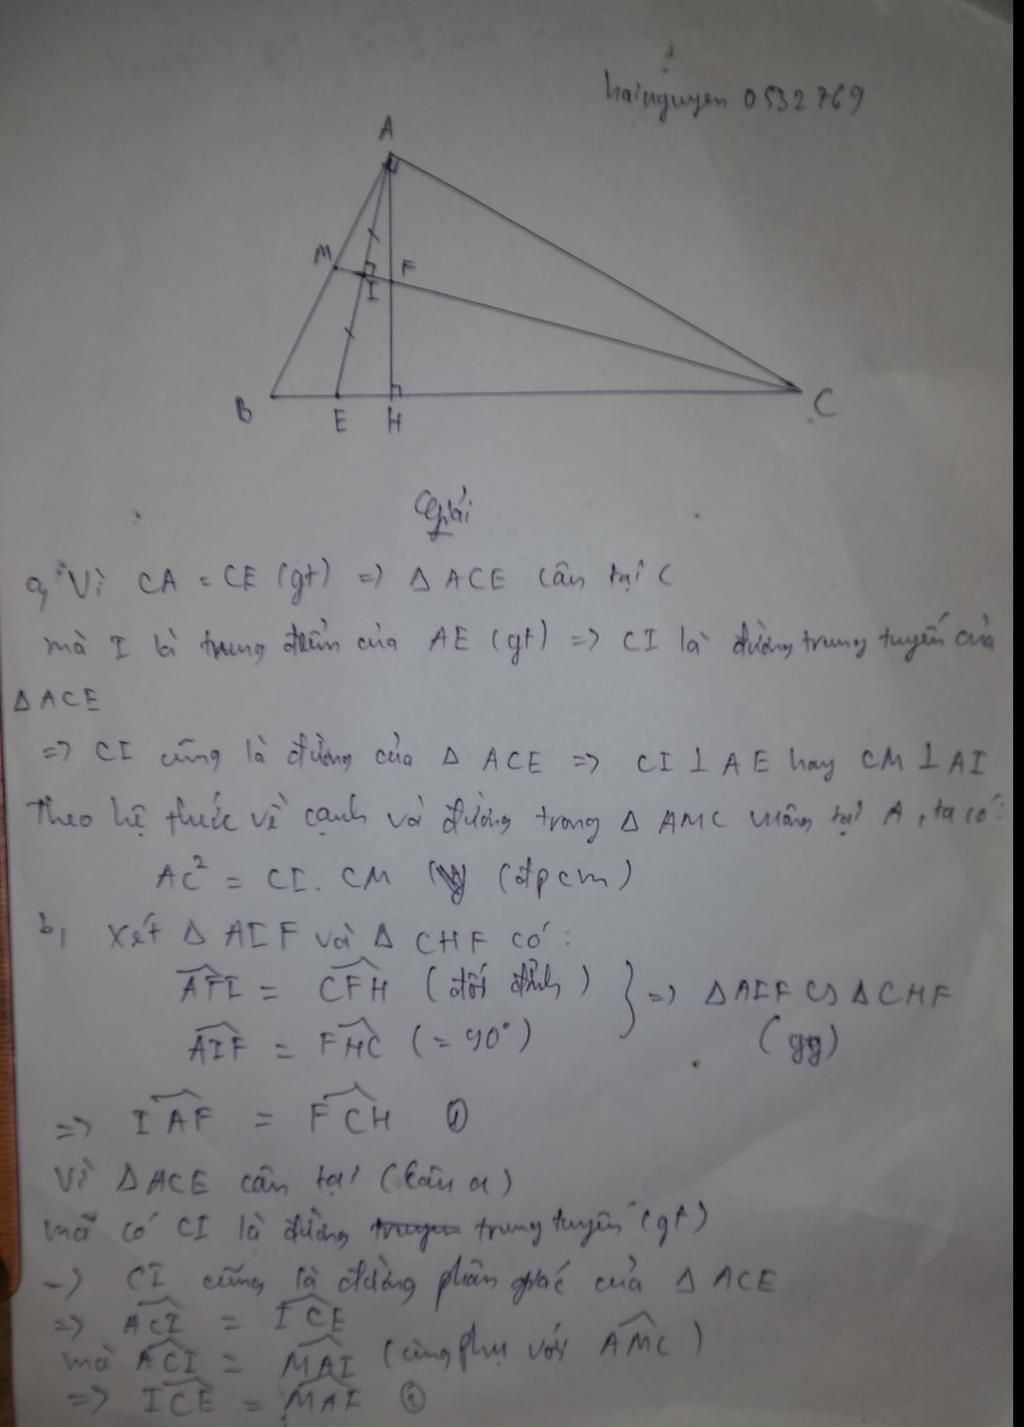 hainguyen 0532769
A
M
F
I
B
E
H
C
Giải
a, Vì CA = CE (gt) => Δ ACE cân tại C
mà I là trung điểm của AE (gt) => CI là đường trung tuyến của
Δ ACE
=> CI cũng là đường của Δ ACE => CI ⊥ AE hay CM ⊥ AI
Theo hệ thức về cạnh và đường trong Δ AMC vuông tại A, ta có:
AC² = CI. CM (đpcm)
b, Xét Δ AIF và Δ CHF có:
AFI = CFH (đối đỉnh)
AIF = FHC (= 90°)
} => Δ AIF ∽ Δ CHF
(gg)
=> IAF = FCH ①
Vì Δ ACE cân tại (câu a)
mà có CI là đường trung tuyến (gt)
-> CI cũng là đường phân giác của Δ ACE
=> ACI = ICE
mà ACI = MAI (cùng phụ với AMC)
=> ICE = MAI ②